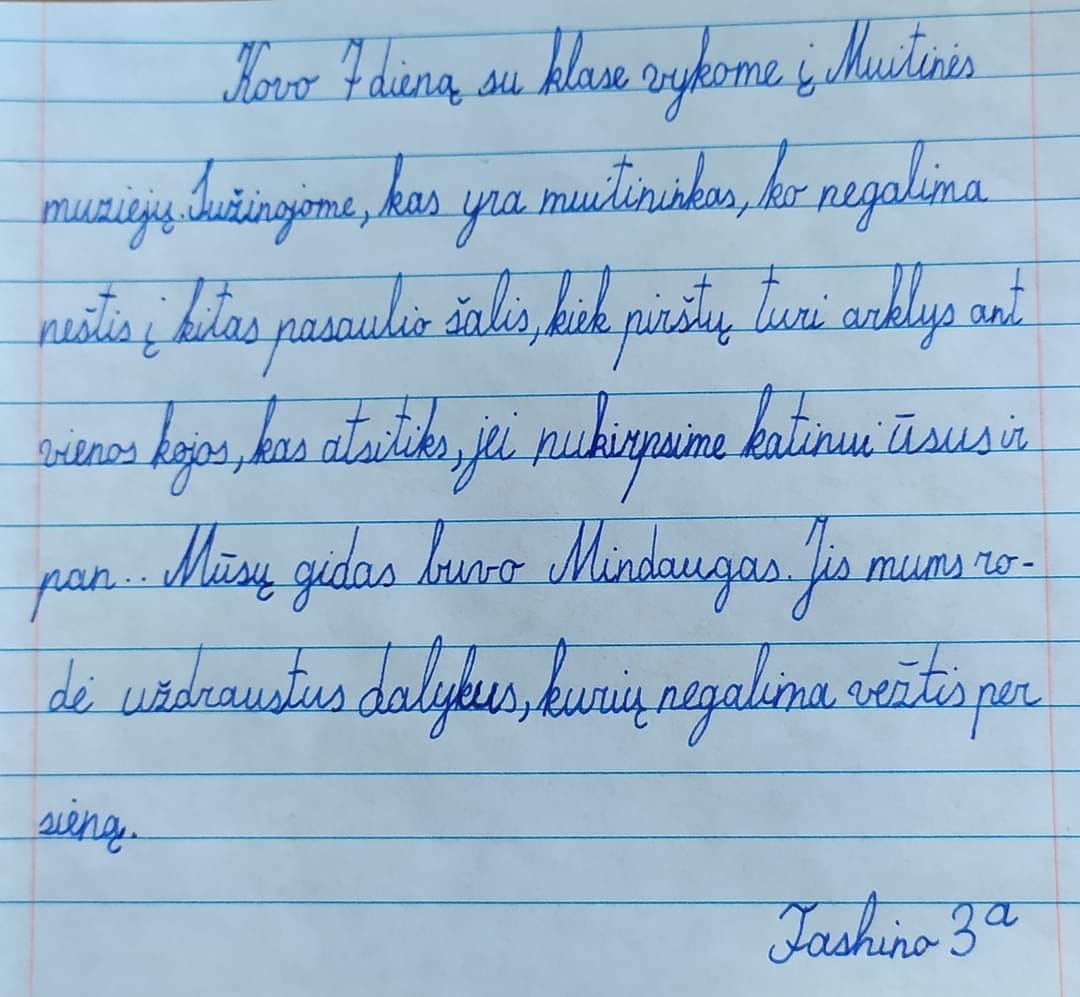 Kovo 7 dieną su klase vykome į Muitinės
muziejų. Sužinojome, kas yra muitininkas, ko negalima
neštis į kitas pasaulio šalis, kiek pirštų turi arklys ant
vienos kojos, kas atsitiks, jei nukirpsime katinui ūsus ir
pan.. Mūsų gidas buvo Mindaugas. Jis mums ro-
dė uždraustus dalykus, kurių negalima vežtis per
sieną.
Jashino 3a